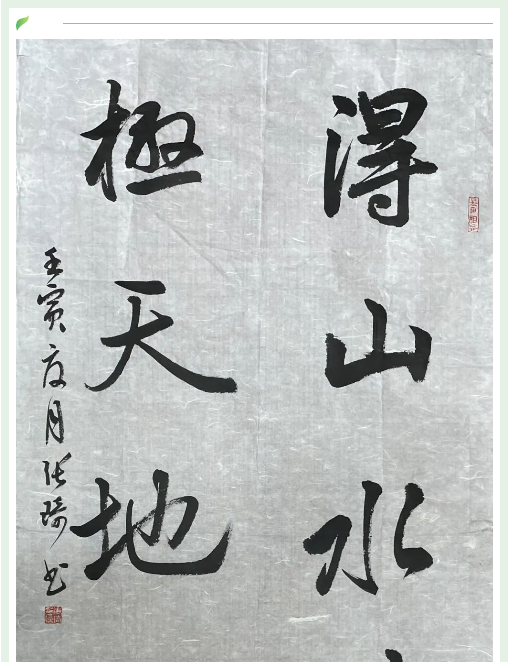 得山水
極天地
壬寅夏月張琦书